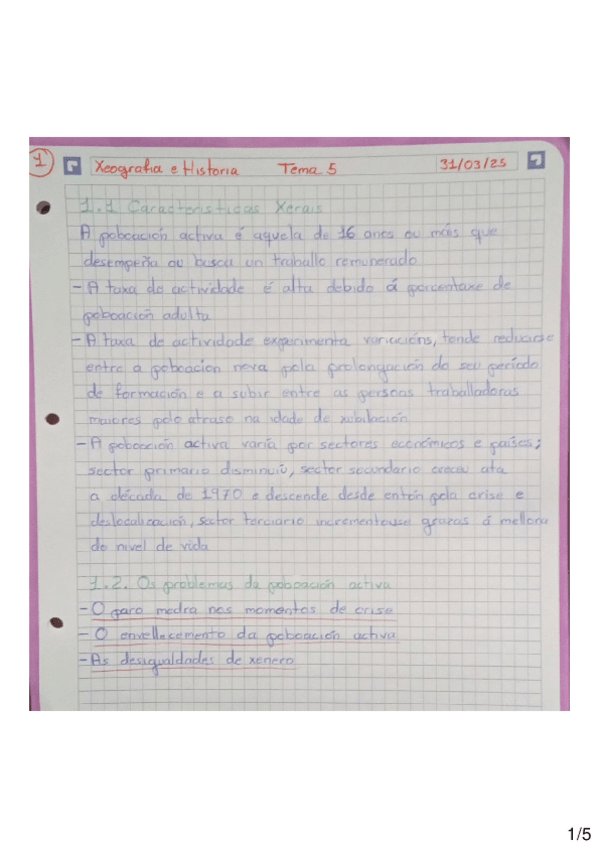 1 Xeografia e Historia Tema 5 31/03/25
1.1 Características Xerais
A poboación activa é aquela de 16 anos ou máis que
desempeña ou busca un traballo remunerado
- A taxa de actividade é alta debido á porcentaxe de
poboación adulta
- A taxa de actividade experimenta variacións, tende reducirse
entre a poboacion nova pola prolongación do seu período
de formación e a subir entre as persoas traballadoras
maiores polo atraso na idade de xubilación
- A poboación activa varía por sectores económicos e países;
sector primario disminuíu, sector secundario creceu ata
a década de 1970 e descende desde entón pola crise e
deslocalización, sector terciario incrementouse grazas á mellora
do nivel de vida
1.2. Os problemas da poboación activa
- O paro medra nos momentos de crise
- O envellecemento da poboación activa
- As desigualdades de xenero
1/5